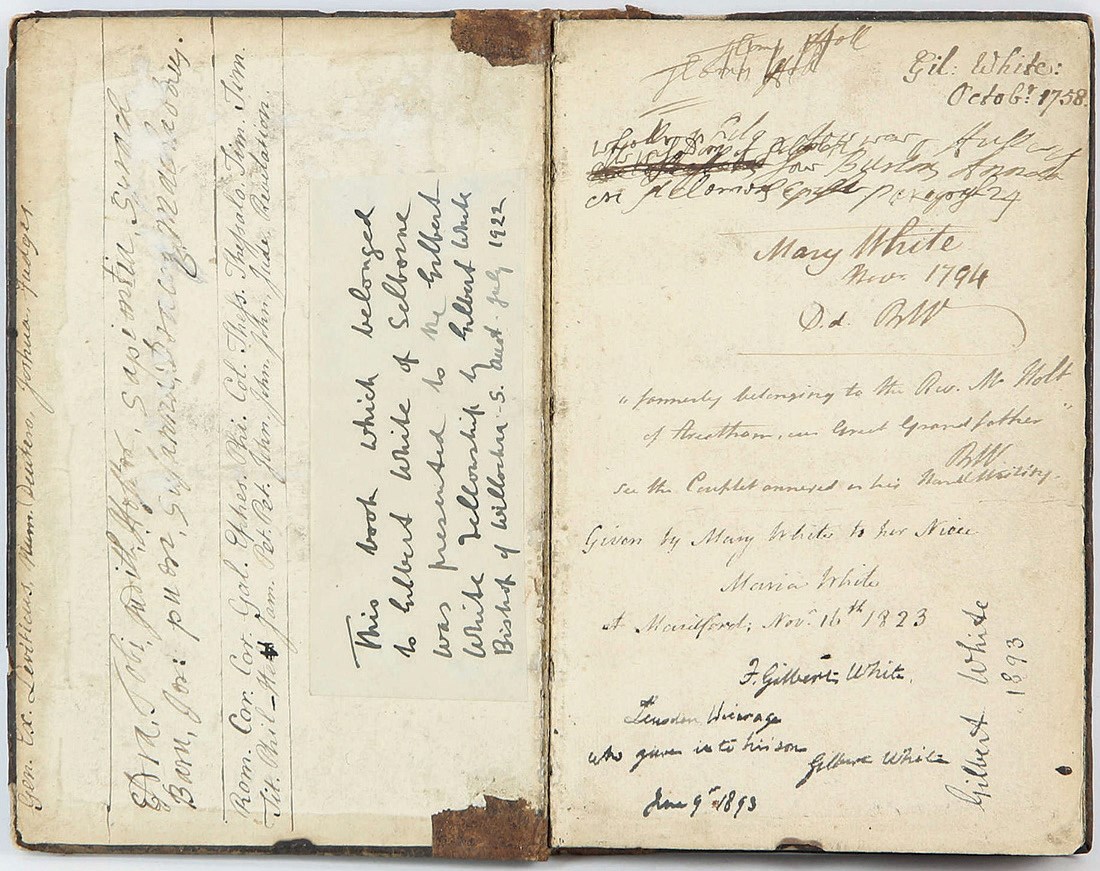 Gen. Ex. Leviticus, Num. Deutero. Joshua, Judges
Esdra, Tobi, Judith, Hester, Sapientia, Sirach
Baru, Jer: pueri, Susanna, Dracoq; Machabæus.
Rom. Cor. Cor. Gal. Ephes. Phi: Col. Thess. Thessalo. Tim. Tim.
Tit. Phil. Jam. Pet. Pet. John, John, John, Jude, Revelation.
This book which belonged
to Gilbert White of Selborne
was presented to the Gilbert
White Fellowship by Gilbert White
Bishop of Willochra S. Aust. July 1922
Gil: White:
Octobr: 1758.
Mary White
Novr. 1794
D.d. BW
"formerly belonging to the Rev. Mr Holt
of Streatham, our Great Grandfather"
BW
See the Couplet annexed in his Hand Writing.
Given by Mary White to her Niece
Maria White
At Novr. 16th 1823
F. Gilbert White.
Leusdon Vicarage
who gives it to his son
Gilbert White
June 9th 1893
Gilbert White
1893